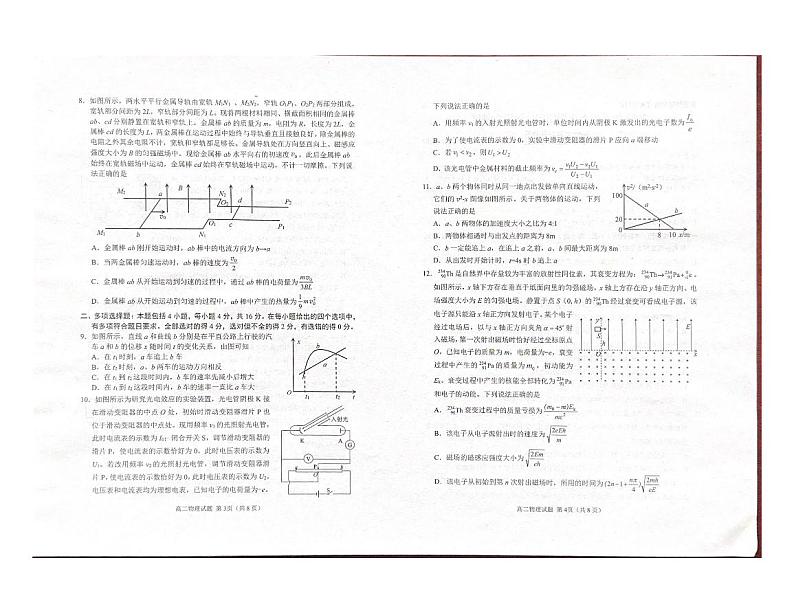 8. 如图所示，两水平平行金属导轨由宽轨 M₁N₁、M₂N₂，窄轨 O₁P₁、O₂P₂ 两部分组成，
宽轨部分间距为 2L，窄轨部分间距为 L。现将两根材料相同、横截面积相同的金属棒
ab、cd 分别静置在宽轨和窄轨上。金属棒 ab 的质量为 m，电阻为 R，长度为 2L，金
属棒 cd 的长度为 L，两金属棒在运动过程中始终与导轨垂直且接触良好，除金属棒的
电阻之外其余电阻不计，宽轨和窄轨都足够长。金属导轨处在方向竖直向上、磁感应
强度大小为 B 的匀强磁场中。现给金属棒 ab 水平向右的初速度 v₀，此后金属棒 ab
始终在宽轨磁场中运动，金属棒 cd 始终在窄轨磁场中运动，不计一切摩擦。下列说
法正确的是
M₂ a B N₂ O₂ d P₂
v₀
M₁ b N₁ O₁ c P₁
A．金属棒 ab 刚开始运动时，ab 棒中的电流方向为 b→a
B．当两金属棒匀速运动时，ab 棒的速度为 v₀/2
C．金属棒 ab 从开始运动到匀速的过程中，通过 ab 棒的电荷量为 mv₀/3BL
D．金属棒 ab 从开始运动到匀速的过程中，ab 棒中产生的热量为 1/9 mv₀²
二、多项选择题：本题包括 4 小题，每小题 4 分，共 16 分。在每小题给出的四个选项中，
有多项符合题目要求。全部选对的得 4 分，选对但不全的得 2 分，有选错的得 0 分。
9. 如图所示，直线 a 和曲线 b 分别是在平直公路上行驶的汽
车 a 和 b 的位移 x 随时间 t 的变化关系，由图可知
A．在 t₁ 时刻，a 车追上 b 车
B．在 t₂ 时刻，a、b 两车的运动方向相反
C．在 t₁ 到 t₂ 这段时间内，b 车的速率先减小后增大
D．在 t₁ 到 t₂ 这段时间内，b 车的速率一直比 a 车大
x b a O t₁ t₂ t
10. 如图所示为研究光电效应的实验装置，光电管阴极 K 接
在滑动变阻器的中点 O 处，初始时滑动变阻器滑片 P 也
位于滑动变阻器的中点处。现用频率 ν₁ 的光照射光电管，
此时电流表的示数为 I₀；闭合开关 S，调节滑动变阻器的
滑片 P，使电流表的示数恰好为 0，此时电压表的示数为
U₁。若改用频率 ν₂ 的光照射光电管，调节滑动变阻器滑
片 P，使电流表的示数恰好为 0，此时电压表的示数为 U₂。
电压表和电流表均为理想电表，已知电子的电荷量为-e。
入射光 K A G V P S
高二物理试题 第 3页（共 8 页）
下列说法正确的是
A．用频率 ν₁ 的入射光照射光电管时，单位时间内从阴极 K 激发出的光电子数为 I₀/e
B．为了使电流表的示数为 0，实验中滑动变阻器的滑片 P 应向 a 端移动
C．若 ν₁ < ν₂，则 U₁ > U₂
D．该光电管中金属材料的截止频率为 ν_c = (ν₁U₂ − ν₂U₁)/(U₂ − U₁)
11. a、b 两个物体同时从同一地点出发做单向直线运动，
它们的 v²-x 图像如图所示。关于两物体的运动，下列
说法正确的是
A．a、b 两物体的加速度大小之比为 4:1
B．两物体相遇时与出发点的距离为 8m
C．b 一定能追上 a，在追上 a 之前，a、b 间最大距离为 8m
D．从出发时开始计时，t=4s 时 b 追上 a
v²/（m²·s⁻²）
100
20
0 8 10 x/m
a b
12. ²³⁴₉₀Th 是自然界中存量较为丰富的放射性同位素，其衰变方程为：²³⁴₉₀Th→²³⁴₉₁Pa+⁰₋₁e。
如图所示，x 轴下方存在垂直于纸面向里的匀强磁场，x 轴上方存在沿 y 轴正方向、电
场强度大小为 E 的匀强电场。静置于点 S（0, h）的 ²³⁴₉₀Th 经过衰变可看成电子源，该
电子源只能沿 x 轴正方向发射电子，某个电子
经过电场后，以与 x 轴正方向夹角 α=45° 射
入磁场，第一次射出磁场时恰好经过坐标原点
O。已知电子的质量为 m，电荷量为-e，衰变
过程中产生的 ²³⁴₉₁Pa 的质量为 m₀，初动能为
E₀，衰变过程中产生的核能全部转化为 ²³⁴₉₁Pa
和电子的动能。下列说法正确的是
A．²³⁴₉₀Th 衰变过程中的质量亏损为 (m₀−m)E₀/mc²
B．该电子从电子源射出时的速度为 √(2eEh/m)
C．磁场的磁感应强度大小为 √(2Em/eh)
D．该电子从初始到第 n 次射出磁场时，所用的时间为 (2n-1+nπ/4)√(2mh/eE)
高二物理试题 第 4页（共 8 页）